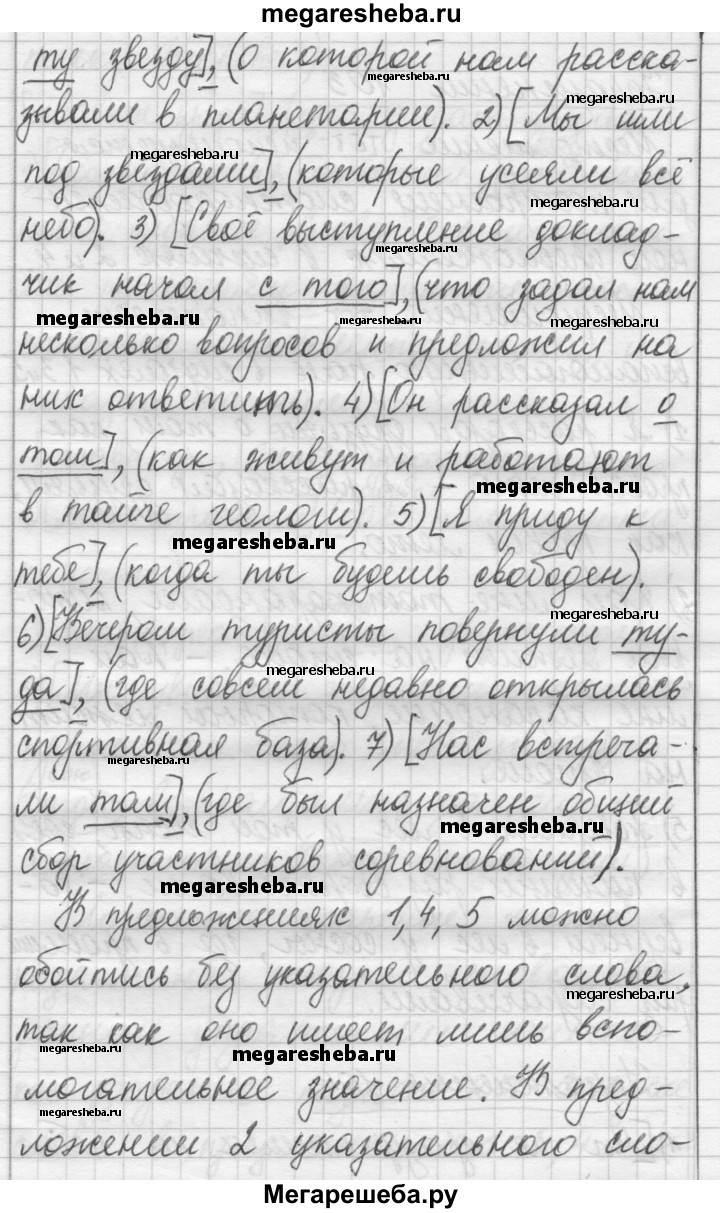 megaresheba.ru
ту звезду], (о которой нам расска-
зывали в планетарии). 2) [Мы шли
под звёздами], (которые усеяли всё
небо). 3) [Своё выступление доклад-
чик начал с того], (что задал нам
несколько вопросов и предложил на
них ответить). 4) [Он рассказал о
том], (как живут и работают
в тайге геологи). 5) [Я приду к
тебе], (когда ты будешь свободен).
6) [Вечером туристы повернули ту-
да], (где совсем недавно открылась
спортивная база). 7) [Нас встреча-
ли там], (где был назначен общий
сбор участников соревнований).
В предложениях 1, 4, 5 можно
обойтись без указательного слова,
так как оно имеет лишь вспо-
могательное значение. В пред-
ложении 2 указательного сло-
Мегарешеба.ру